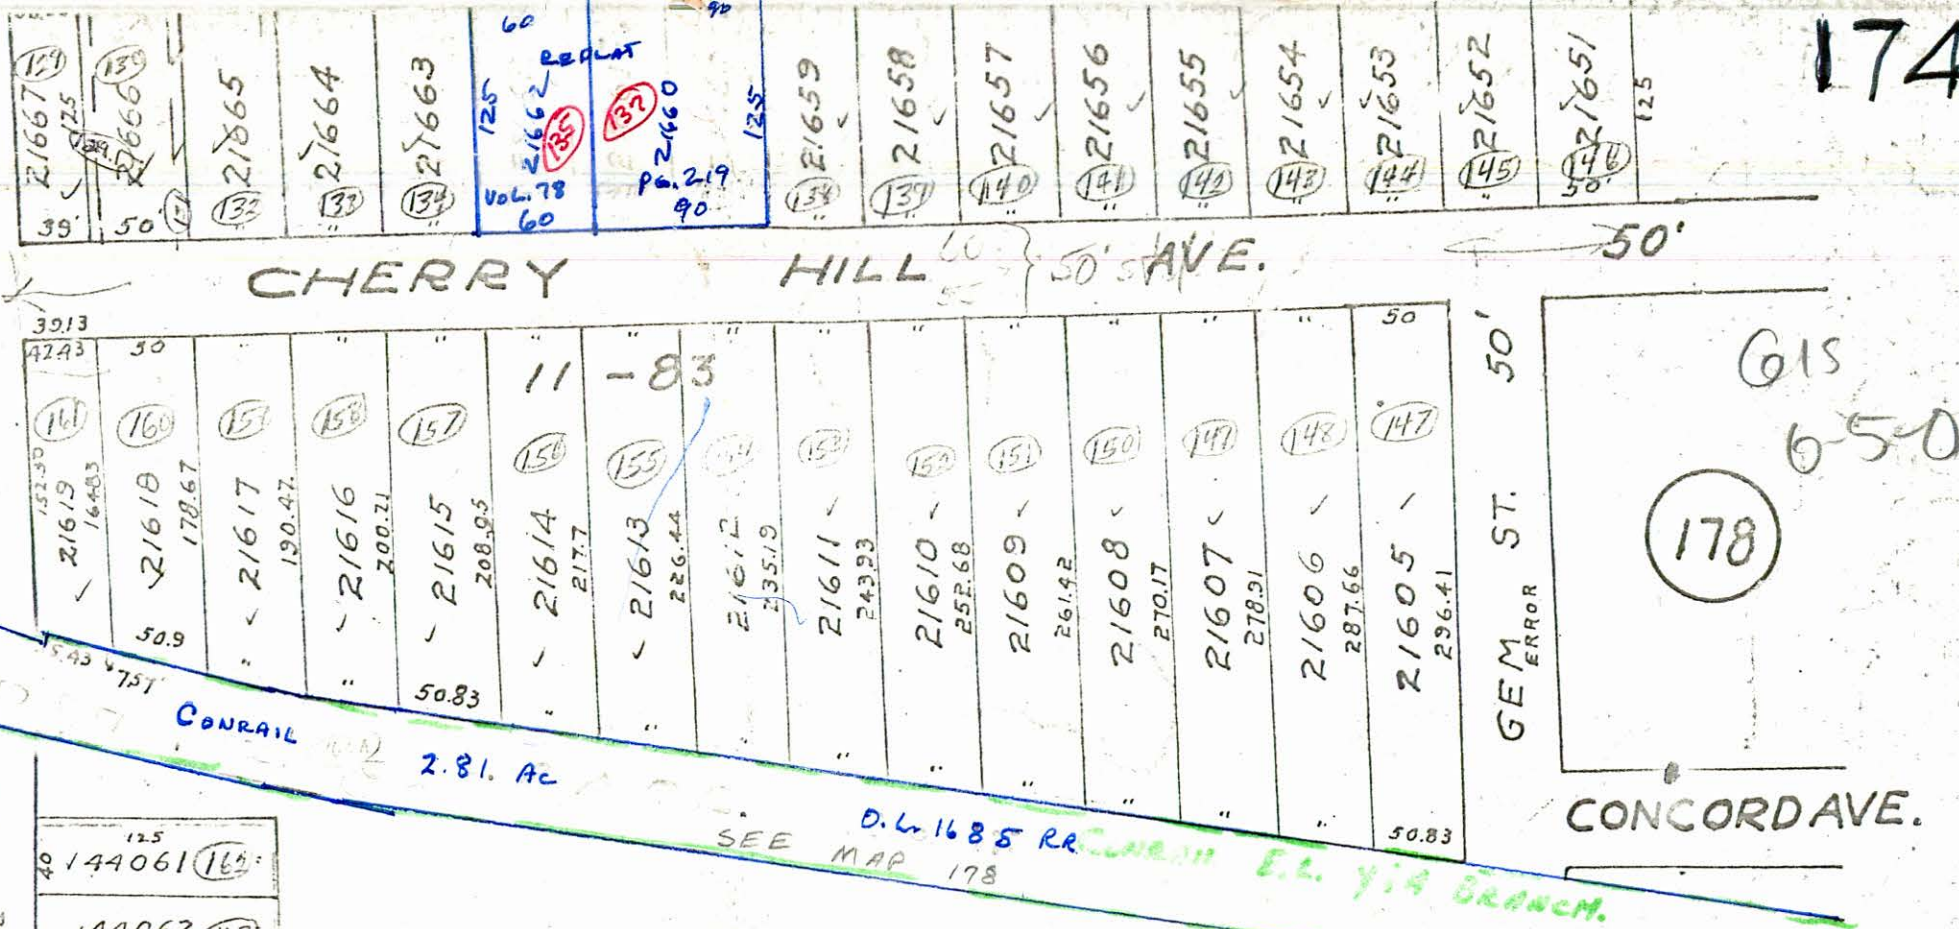 174
60
90
REPLAT
21667
125
39'
21666
50'
21665
133
21664
133
21663
134
125
21662
135
VOL. 78
60
137
21660
PG. 219
90
125
21659
21658
139
21657
140
21656
141
21655
142
21654
143
21653
144
21652
145
21651
146
50'
125
CHERRY HILL AVE.
60
55
50'
50'
39.13
42.43
50
50
11-83
161
152.50
21619
164.83
160
21618
178.67
50.9
159
21617
190.47
158
21616
200.21
157
21615
208.95
50.83
156
21614
217.7
155
21613
226.44
154
21612
235.19
153
21611
243.93
152
21610
252.68
151
21609
261.42
150
21608
270.17
149
21607
278.91
148
21606
287.66
147
21605
296.41
50.83
GEM ST. 50'
ERROR
GIS
6-5-0
178
CONCORD AVE.
5.43
47.57
CONRAIL
2.81. Ac
D.L. 1685 RR
CONRAIL E.L. Y&A BRANCH.
SEE MAP 178
125
40
144061
162